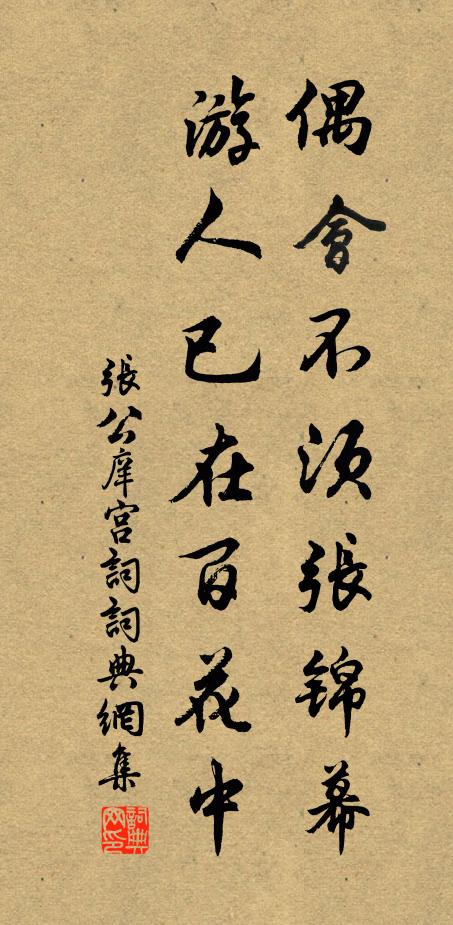 偶會不須張錦幕
游人已在百花中
張公庠宮詞詞典網集
詞典
网印